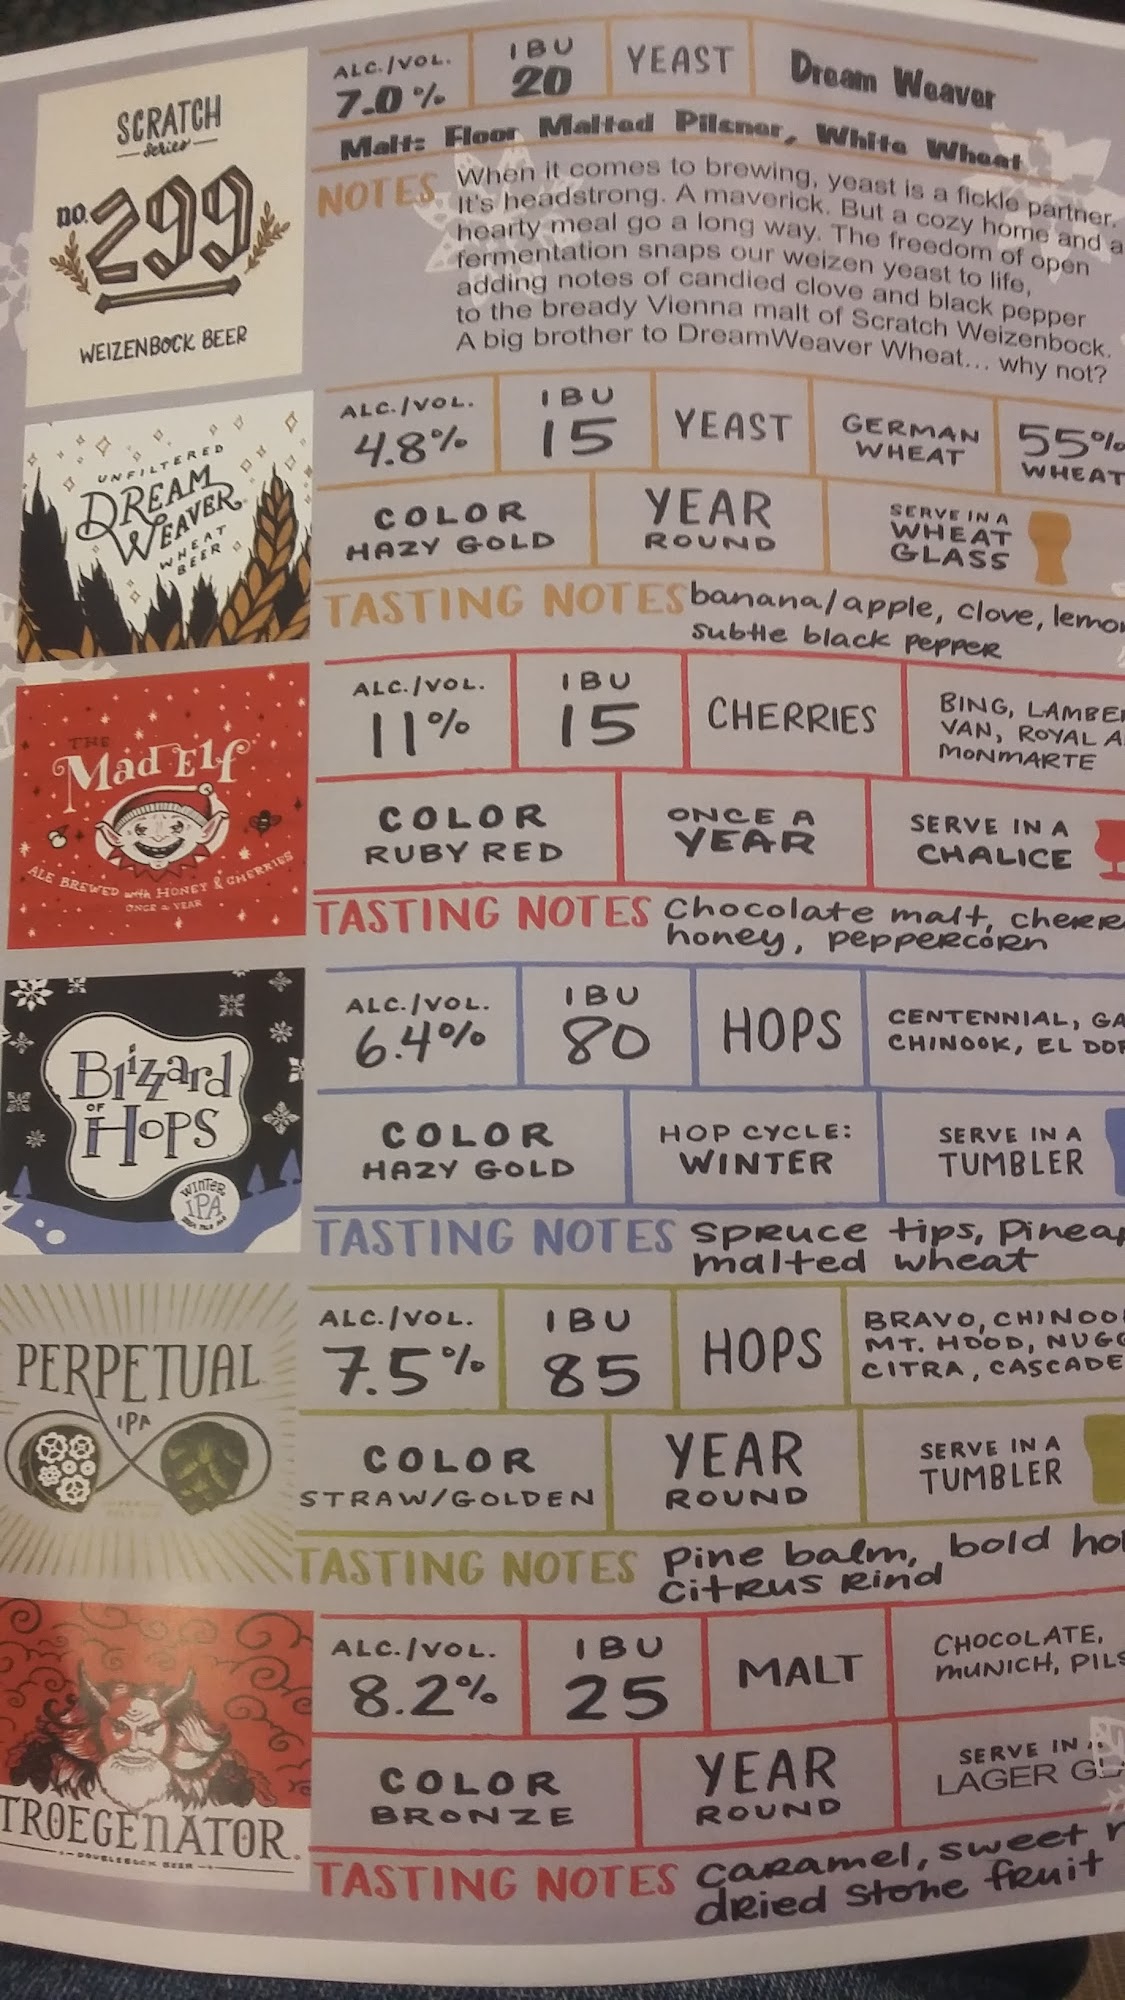 SCRATCH
Series
NO. 299
WEIZENBOCK BEER
ALC./VOL. 7.0% IBU 20 YEAST Dream Weaver
Malt: Floor Malted Pilsner, White Wheat
NOTES When it comes to brewing, yeast is a fickle partner.
It's headstrong. A maverick. But a cozy home and a
hearty meal go a long way. The freedom of open
fermentation snaps our weizen yeast to life,
adding notes of candied clove and black pepper
to the bready Vienna malt of Scratch Weizenbock.
A big brother to DreamWeaver Wheat... why not?
UNFILTERED
DREAM
WEAVER
WHEAT
BEER
ALC./VOL. 4.8% IBU 15 YEAST GERMAN WHEAT 55% WHEAT
COLOR HAZY GOLD YEAR ROUND SERVE IN A WHEAT GLASS
TASTING NOTES banana/apple, clove, lemon
subtle black pepper
THE
Mad Elf
ALE BREWED with HONEY & CHERRIES
ONCE a YEAR
ALC./VOL. 11% IBU 15 CHERRIES BING,
VAN, ROYAL A
MONMARTE
COLOR RUBY RED ONCE A YEAR SERVE IN A CHALICE
TASTING NOTES Chocolate malt, cherr
honey, peppercorn
Blizzard
OF
HOPS
WINTER
IPA
ALC./VOL. 6.4% IBU 80 HOPS CENTENNIAL, GA
CHINOOK, EL DOR
COLOR HAZY GOLD HOP CYCLE: WINTER SERVE IN A TUMBLER
TASTING NOTES spruce tips, pineap
malted wheat
PERPETUAL
IPA
ALC./VOL. 7.5% IBU 85 HOPS BRAVO, CHINOO
MT. HOOD, NUGG
CITRA, CASCADE
COLOR STRAW/GOLDEN YEAR ROUND SERVE IN A TUMBLER
TASTING NOTES pine balm, bold ho
citrus rind
TROEGENATOR
DOUBLEBOCK BEER
ALC./VOL. 8.2% IBU 25 MALT CHOCOLATE,
MUNICH, PILS
COLOR BRONZE YEAR ROUND SERVE IN A LAGER GL
TASTING NOTES caramel, sweet
dried stone fruit